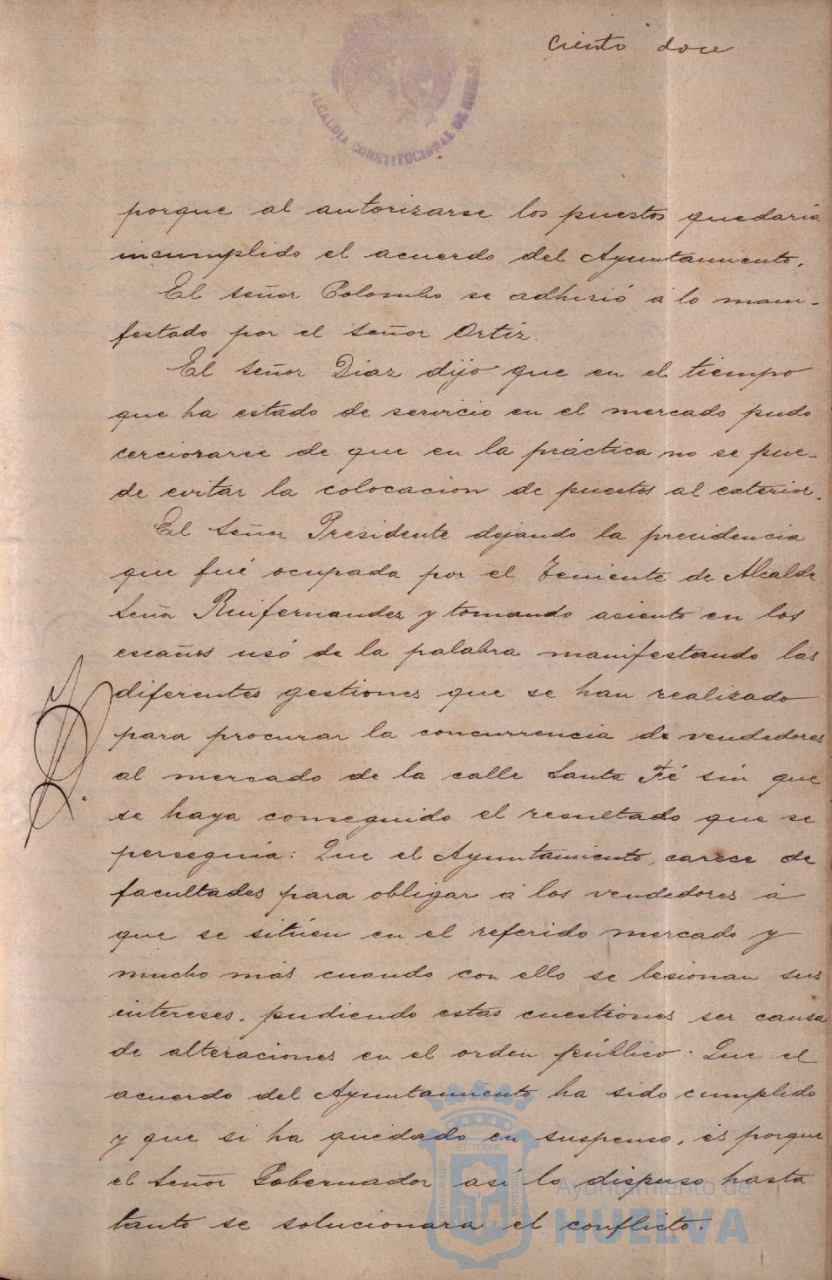 Ciento doce
ALCALDIA CONSTITUCIONAL DE HUELVA
porque al autorizarse los puestos quedaria
incumplido el acuerdo del Ayuntamiento.
El señor Colombo se adhirió á lo mani-
festado por el señor Ortiz.
El señor Diaz dijo que en el tiempo
que ha estado de servicio en el mercado pudo
cerciorarse de que en la práctica no se pue-
de evitar la colocacion de puestos al exterior.
El señor Presidente dejando la presidencia
que fué ocupada por el Teniente de Alcalde
señor Ruifernandez y tomando asiento en los
escaños usó de la palabra manifestando las
diferentes gestiones que se han realizado
para procurar la concurrencia de vendedores
al mercado de la calle Santa Fé sin que
se haya conseguido el resultado que se
perseguia: Que el Ayuntamiento carece de
facultades para obligar á los vendedores á
que se sitúen en el referido mercado y
mucho más cuando con ello se lesionan sus
intereses, pudiendo estas cuestiones ser causa
de alteraciones en el orden público: Que el
acuerdo del Ayuntamiento ha sido cumplido
y que si ha quedado en suspenso, es porque
el señor Gobernador así lo dispuso hasta
tanto se solucionara el conflicto.
Ayuntamiento de
HUELVA